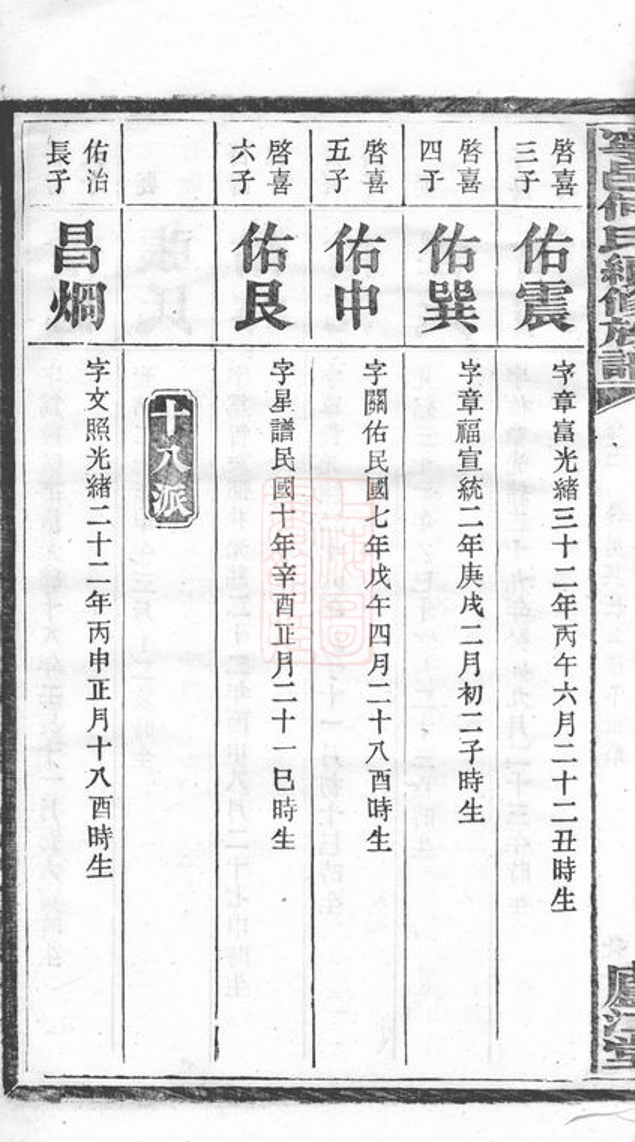 何氏續修族譜
廬江堂
啓喜
三子
佑震
字章富光緒三十二年丙午六月二十二丑時生
啓喜
四子
佑巽
字章福宣統二年庚戌二月初二子時生
啓喜
五子
佑申
字關佑民國七年戊午四月二十八酉時生
啓喜
六子
佑艮
字星譜民國十年辛酉正月二十一巳時生
十八派
佑治
長子
昌炯
字文照光緒二十二年丙申正月十八酉時生